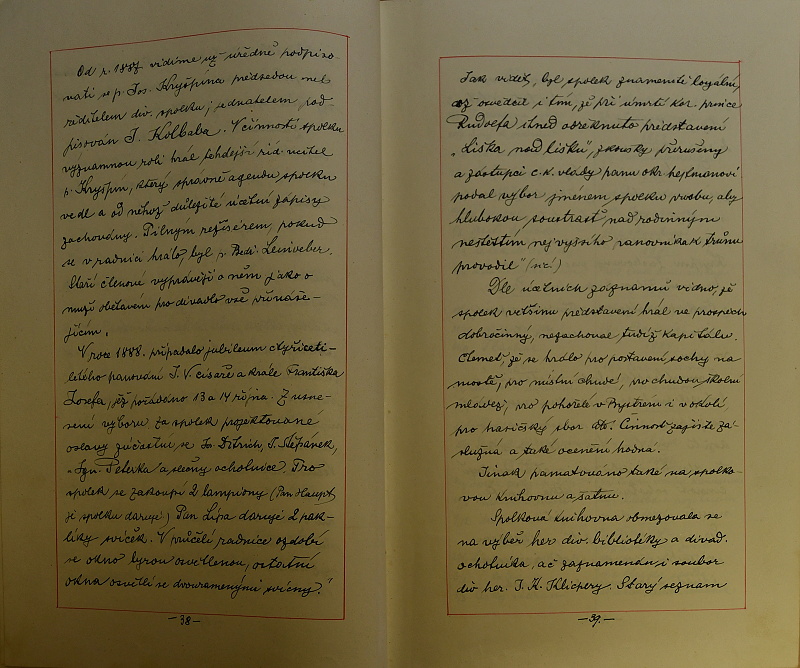 Od r. 1887 vidíme už úředně podpiso-
vati se p. Jos. Kryšpína předsedou neb
ředitelem div. spolku; jednatelem pod
pisován J. Kolbaba. V činnosti spolku
významnou roli hrál tehdejší říd. učitel
p. Kryšpín, který správně agendu spolku
vedl a od něhož důležité účetní zápisy
zachovány. Pilným režisérem, pokud
se v radnici hrálo, byl p. Bedř. Leinveber.
Staří členové vyprávějí o něm jako o
muži obětavém pro divadlo vše přináše-
jícím.
V roce 1888. připadalo jubileum čtyřiceti-
letého panování J. V. císaře a krále Františka
Josefa, jež pořádáno 13 a 14 října. Z usne-
sení výboru za spolek projektované
oslavy zúčastní se Jos. Ditrich, J. Štěpánek,
Ign. Peterka a slečny ochotnice. Pro
spolek se zakoupí 2 lampiony (Pan Haupt
je spolku daruje) Pan Lípa daruje 2 pak-
líky svíček. V průčelí radnice ozdobí
se okno lyrou osvětlenou, ostatní
okna osvětlí se dvouramennými svícny."
— 38 —
Jak vidět, byl spolek znamenitě loyální,
což osvědčil i tím, že při úmrtí kor. prince
Rudolfa ihned odřeknuto představení
„Liška nad lišku", zkoušky přerušeny
a zástupci c.k. vlády panu okr. hejtmanovi
podal výbor jménem spolku prosbu, aby
hlubokou soustrast „nad rodinným
neštěstím nejvyššího panovníka k trůnu
provodil" (sic!)
Dle účetních záznamů vidno, že
spolek většinu představení hrál ve prospěch
dobročinný, nezachoval tudíž kapitálu.
Clemet, že se hrálo pro postavení sochy na
mostě, pro místní chudé, pro chudou školní
mládež, pro pohořelé v Bystrém i v okolí
pro hasičský sbor atd. Činnost zajisté zá-
služná a také ocenění hodná.
Jinak pamatováno také na spolko-
vou knihovnu a šatnu.
Spolková knihovna obmezovala se
na výběr her div. bibliotéky a divad.
ochotníka, ač zaznamenán i soubor
div her. J. K. Klicpery. Starý seznam
— 39. —